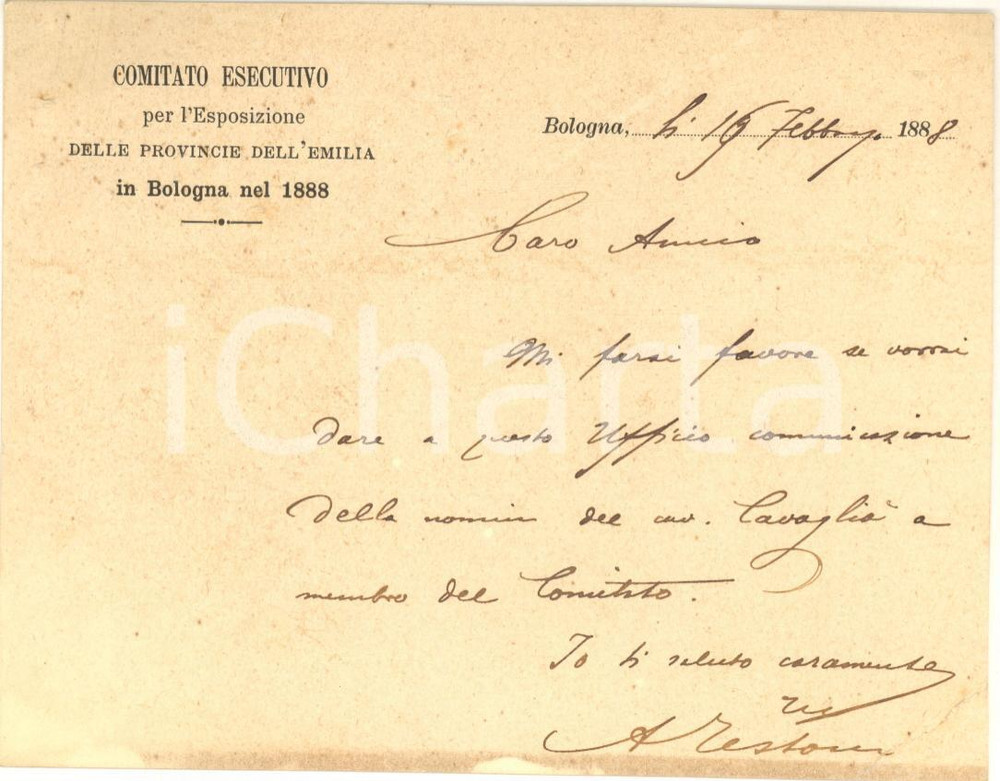 COMITATO ESECUTIVO
per l'Esposizione
DELLE PROVINCIE DELL'EMILIA
in Bologna nel 1888
Bologna, li 16 Febbrajo 1888
Caro Amico
Mi farai favore se vorrai
dare a questo Ufficio comunicazione
della nomina del cav. Cavaglià a
membro del Comitato.
Io ti saluto caramente
A Testoni
iCharta